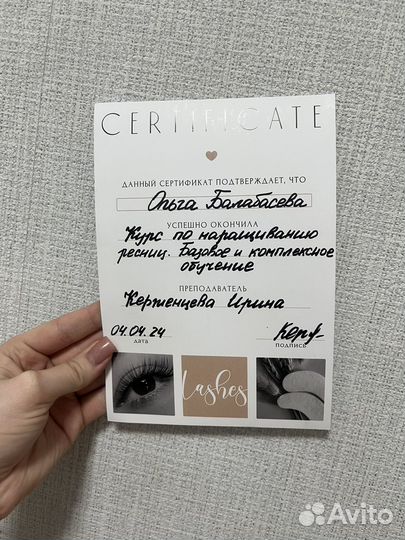 CERTIFICATE
ДАННЫЙ СЕРТИФИКАТ ПОДТВЕРЖДАЕТ, ЧТО
Ольга Балабасева
УСПЕШНО ОКОНЧИЛА
Курс по наращиванию
ресниц. Базовое и комплексное
обучение
ПРЕПОДАВАТЕЛЬ
Керженцева Ирина
04.04.24
ДАТА
ПОДПИСЬ
Lashes
Avito